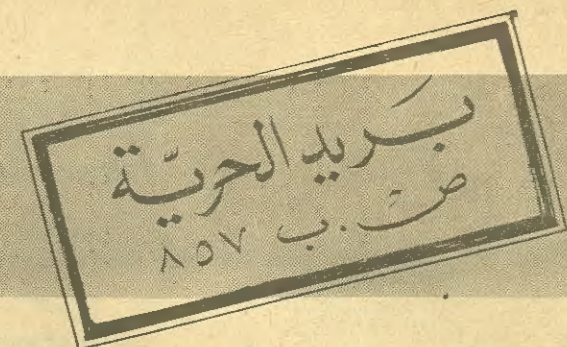 بريد الحريّة
ص.ب ٨٥٧